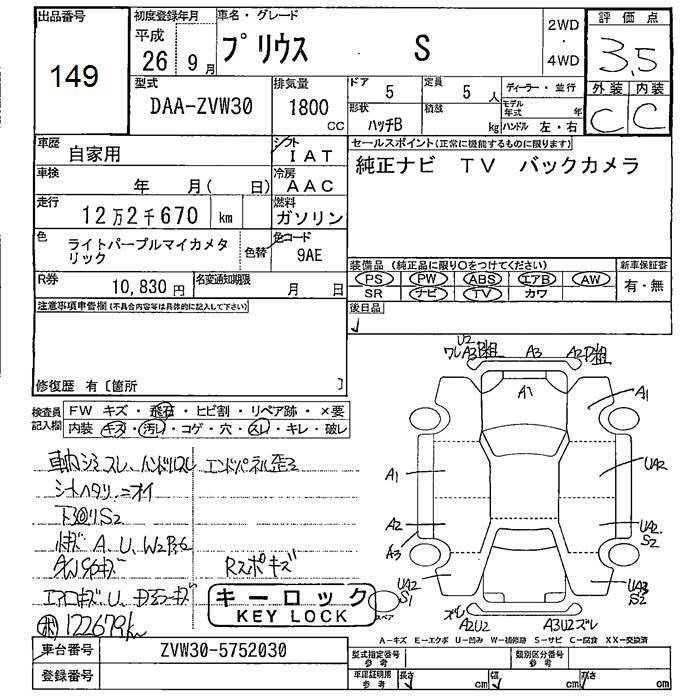 出品番号
149
初度登録年月
平成
26年 9月
車名・グレード
プリウス S
2WD
・
4WD
評価点
3,5
外装 内装
C C
型式
DAA-ZVW30
排気量
1800
cc
ドア
5
定員
5 人
ディーラー・並行
形状
ハッチB
積載
kg
モデル年式
年
ハンドル 左・右
車歴
自家用
シフト
IAT
セールスポイント(正常に機能するものに限ります)
純正ナビ TV バックカメラ
車検
年 月( 日)
冷房
AAC
走行
12万2千670 km
燃料
ガソリン
色
ライトパープルマイカメタ
リック
色替
色コード
9AE
装備品 (純正品に限り○をつけてください)
新車保証書
PS PW ABS エアB AW
SR ナビ TV カワ
有・無
R券
10,830 円
名変通知期限
月 日
注意事項申告欄(不具合内容等は具体的に記入して下さい)
後日品
修復歴 有〔箇所 〕
検査員
記入欄
FW キズ・飛石・ヒビ割・リペア跡・×要
内装 キズ・汚れ・コゲ・穴・スレ・キレ・破レ
シートヘタリ ニオイ
下廻りS2
A、U、W2
122679km
キーロック
KEY LOCK
U2
A3
A3
A2
A1
A1
A1
UA2
A2
A3
UA2
S2
UA2
S1
UA3
S2
ズレ
A2U2
A3U2ズレ
スペア
A-キズ E-エクボ U-凹み W-補修跡 S-サビ C-腐食 XX-交換済
車台番号
ZVW30-5752030
登録番号
型式指定番号
参考
類別区分番号
参考
車庫証明用
参考
長さ cm
幅 cm
高さ cm